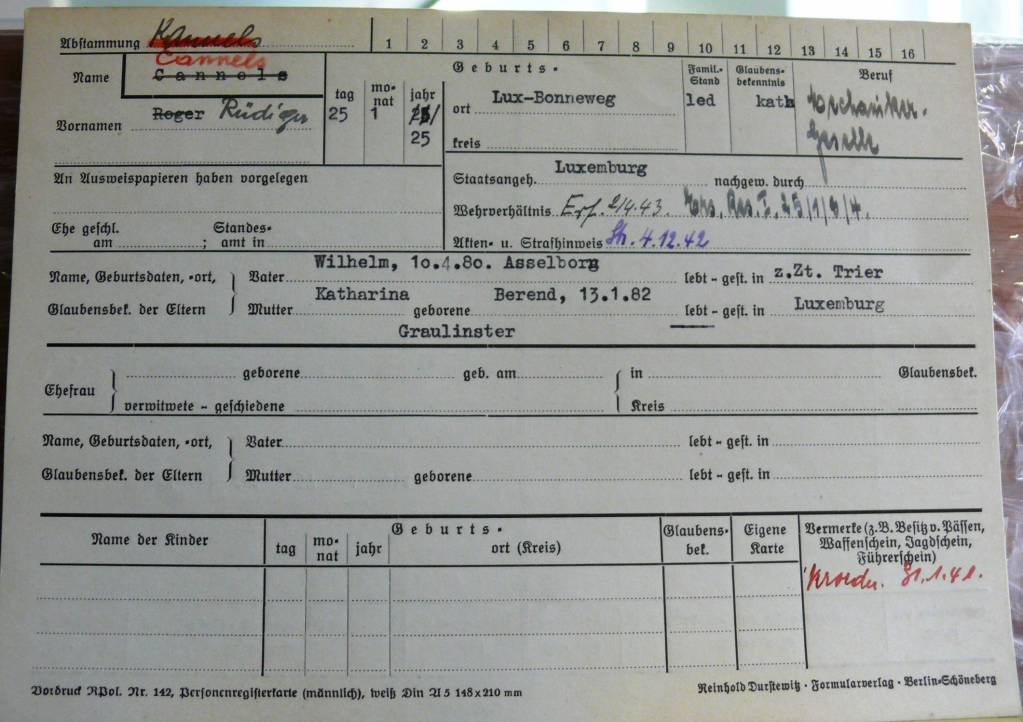 Abstammung Kannels 1 2 3 4 5 6 7 8 9 10 11 12 13 14 15 16
Cannels
Name Cannels
Geburts-
Famil.-Stand Glaubens-bekenntnis Beruf
tag mo-nat jahr
ort Lux-Bonneweg led kath Mechaniker-
Vornamen Roger Rüdiger 25 1
25 kreis Geselle
An Ausweispapieren haben vorgelegen
Staatsangeh. Luxemburg nachgew. durch
Wehrverhältnis Erf. 2/4.43. Ers. Res. I. 25/1/6/4.
Ehe geschl. Standes-
am ; amt in
Akten- u. Strafhinweis 4.12.42
Name, Geburtsdaten, -ort, Vater Wilhelm, 10.4.80. Asselborn lebt - gest. in z.Zt. Trier
Glaubensbek. der Eltern Mutter Katharina geborene Berend, 13.1.82 lebt - gest. in Luxemburg
Graulinster
Ehefrau geborene geb. am in Glaubensbek.
verwitwete - geschiedene Kreis
Name, Geburtsdaten, -ort, Vater lebt - gest. in
Glaubensbek. der Eltern Mutter geborene lebt - gest. in
Name der Kinder
Geburts-
tag mo-nat jahr ort (Kreis)
Glaubens-bek.
Eigene Karte
Vermerke (z.B. Besitz v. Pässen,
Waffenschein, Jagdschein,
Führerschein)
1.41.
Vordruck RPol. Nr. 142, Personenregisterkarte (männlich), weiß Din A 5 148 x 210 mm
Reinhold Durstewitz · Formularverlag · Berlin-Schöneberg